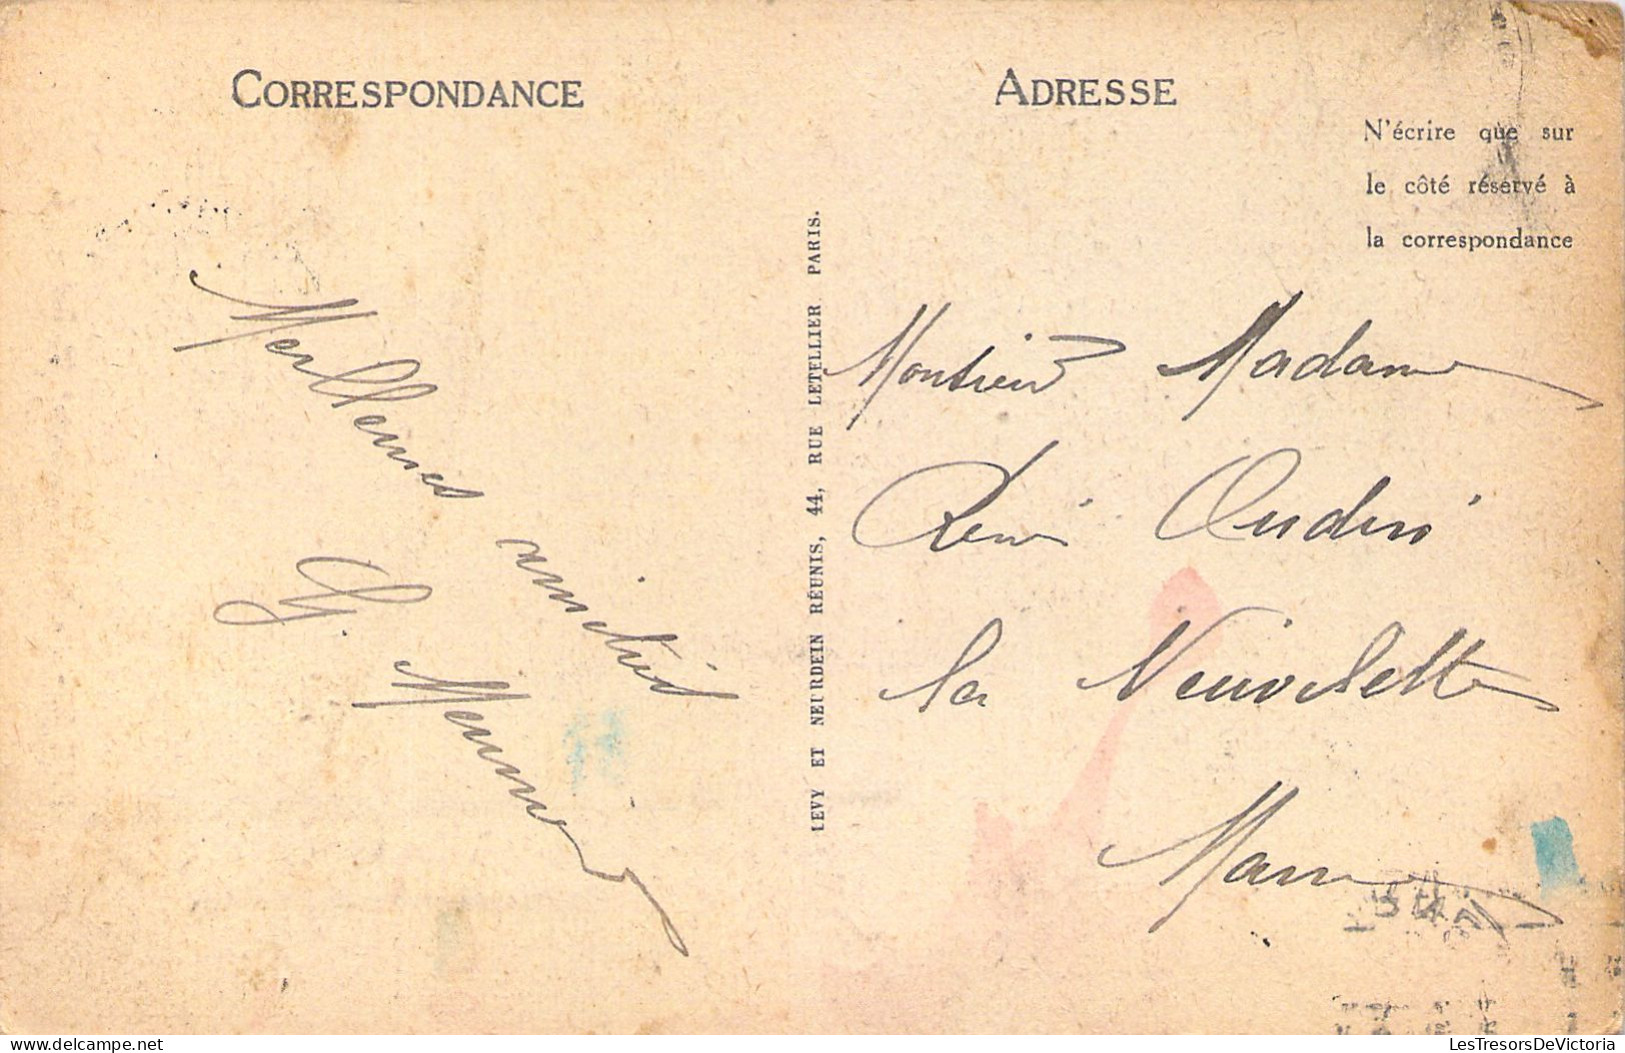 CORRESPONDANCE
ADRESSE
N'écrire que sur
le côté réservé à
la correspondance
Meilleures amitiés
G. Meunier
LEVY ET NEURDEIN RÉUNIS, 44, RUE LETELLIER PARIS.
Monsieur Madame
René Oudin
la Neuvillette
Marne
www.delcampe.net
LesTresorsDeVictoria